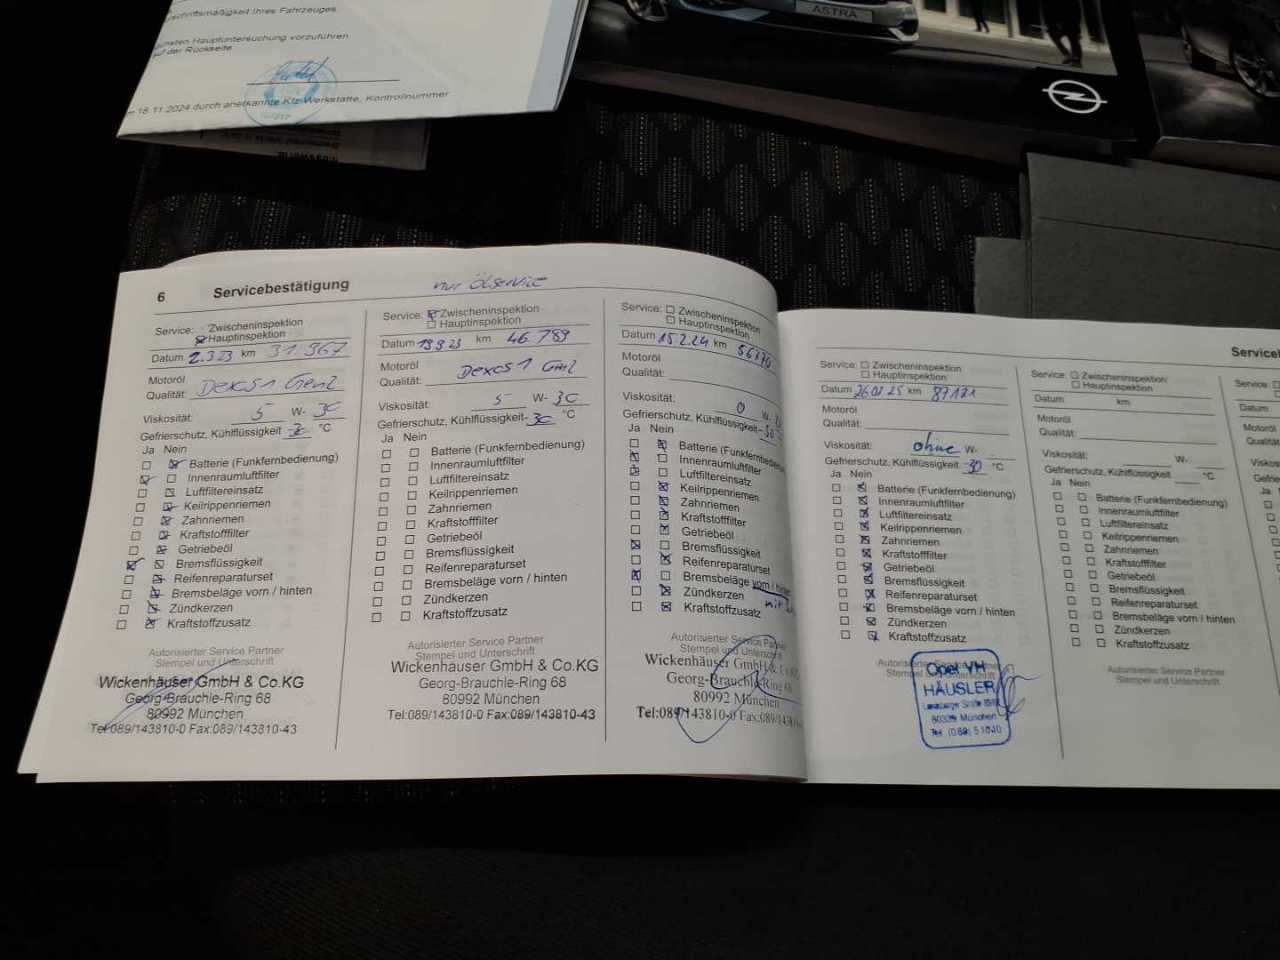 Ihres Fahrzeuges.
Hauptuntersuchung vorzuführen
auf der Rückseite
16.11.2024 durch anerkannte Kfz-Werkstätte, Kontrollnummer
ASTRA
6 Servicebestätigung
nur Ölservice
Service: Zwischeninspektion
Hauptinspektion
Datum 2.3.23 km 31.967
Motoröl
Qualität: Dexos 1 Gen2
Viskosität: 5 W- 30
Gefrierschutz, Kühlflüssigkeit °C
Ja Nein
Batterie (Funkfernbedienung)
Innenraumluftfilter
Luftfiltereinsatz
Keilrippenriemen
Zahnriemen
Kraftstofffilter
Getriebeöl
Bremsflüssigkeit
Reifenreparaturset
Bremsbeläge vorn / hinten
Zündkerzen
Kraftstoffzusatz
Autorisierter Service Partner
Stempel und Unterschrift
Wickenhäuser GmbH & Co.KG
Georg-Brauchle-Ring 68
80992 München
Tel:089/143810-0 Fax:089/143810-43
Service: Zwischeninspektion
Hauptinspektion
Datum 19.9.23 km 46.789
Motoröl
Qualität: Dexos 1 Gen2
Viskosität: 5 W- 30
Gefrierschutz, Kühlflüssigkeit -30 °C
Ja Nein
Batterie (Funkfernbedienung)
Innenraumluftfilter
Luftfiltereinsatz
Keilrippenriemen
Zahnriemen
Kraftstofffilter
Getriebeöl
Bremsflüssigkeit
Reifenreparaturset
Bremsbeläge vorn / hinten
Zündkerzen
Kraftstoffzusatz
Autorisierter Service Partner
Stempel und Unterschrift
Wickenhäuser GmbH & Co.KG
Georg-Brauchle-Ring 68
80992 München
Tel:089/143810-0 Fax:089/143810-43
Service: Zwischeninspektion
Hauptinspektion
Datum 15.2.24 km
Motoröl
Qualität:
Viskosität: 0 W-
Gefrierschutz, Kühlflüssigkeit °C
Ja Nein
Batterie (Funkfernbedienung
Innenraumluftfilter
Luftfiltereinsatz
Keilrippenriemen
Zahnriemen
Kraftstofffilter
Getriebeöl
Bremsflüssigkeit
Reifenreparaturset
Bremsbeläge vorn / hinten
Zündkerzen
Kraftstoffzusatz
Autorisierter Service Partner
Stempel und Unterschrift
Wickenhäuser GmbH & Co.KG
Georg-Brauchle-Ring 68
80992 München
Tel:089/143810-0 Fax:089/143810
Service: Zwischeninspektion
Hauptinspektion
Datum km 87121
Motoröl
Qualität:
Viskosität: ohne W-
Gefrierschutz, Kühlflüssigkeit -30 °C
Ja Nein
Batterie (Funkfernbedienung)
Innenraumluftfilter
Luftfiltereinsatz
Keilrippenriemen
Zahnriemen
Kraftstofffilter
Getriebeöl
Bremsflüssigkeit
Reifenreparaturset
Bremsbeläge vorn / hinten
Zündkerzen
Kraftstoffzusatz
Autorisierter Service Partner
Stempel und Unterschrift
Opel VH
HÄUSLER
München
Service: Zwischeninspektion
Hauptinspektion
Datum km
Motoröl
Qualität:
Viskosität: W-
Gefrierschutz, Kühlflüssigkeit °C
Ja Nein
Batterie (Funkfernbedienung)
Innenraumluftfilter
Luftfiltereinsatz
Keilrippenriemen
Zahnriemen
Kraftstofffilter
Getriebeöl
Bremsflüssigkeit
Reifenreparaturset
Bremsbeläge vorn / hinten
Zündkerzen
Kraftstoffzusatz
Autorisierter Service Partner
Stempel und Unterschrift
Service:
Datum
Motoröl
Qualität:
Viskosität:
Gefrierschutz
Ja